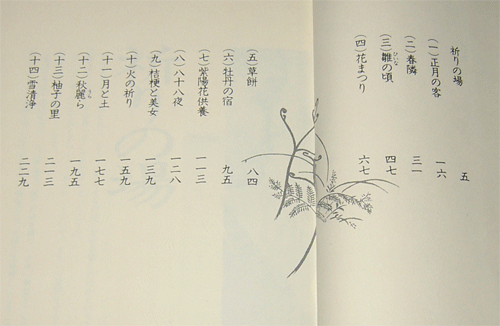 祈りの場 五
(一)正月の客 一六
(二)春隣 三一
(三)雛の頃 四七
ひいな
(四)花まつり 六七
(五)草餅 八四
(六)牡丹の宿 九五
(七)紫陽花供養 一一三
(八)八十八夜 一二八
(九)桔梗と美女 一三九
(十)火の祈り 一五九
(十一)月と土 一七七
(十二)秋麗ら 一九五
うら
(十三)柚子の里 二一三
(十四)雪清浄 二二九